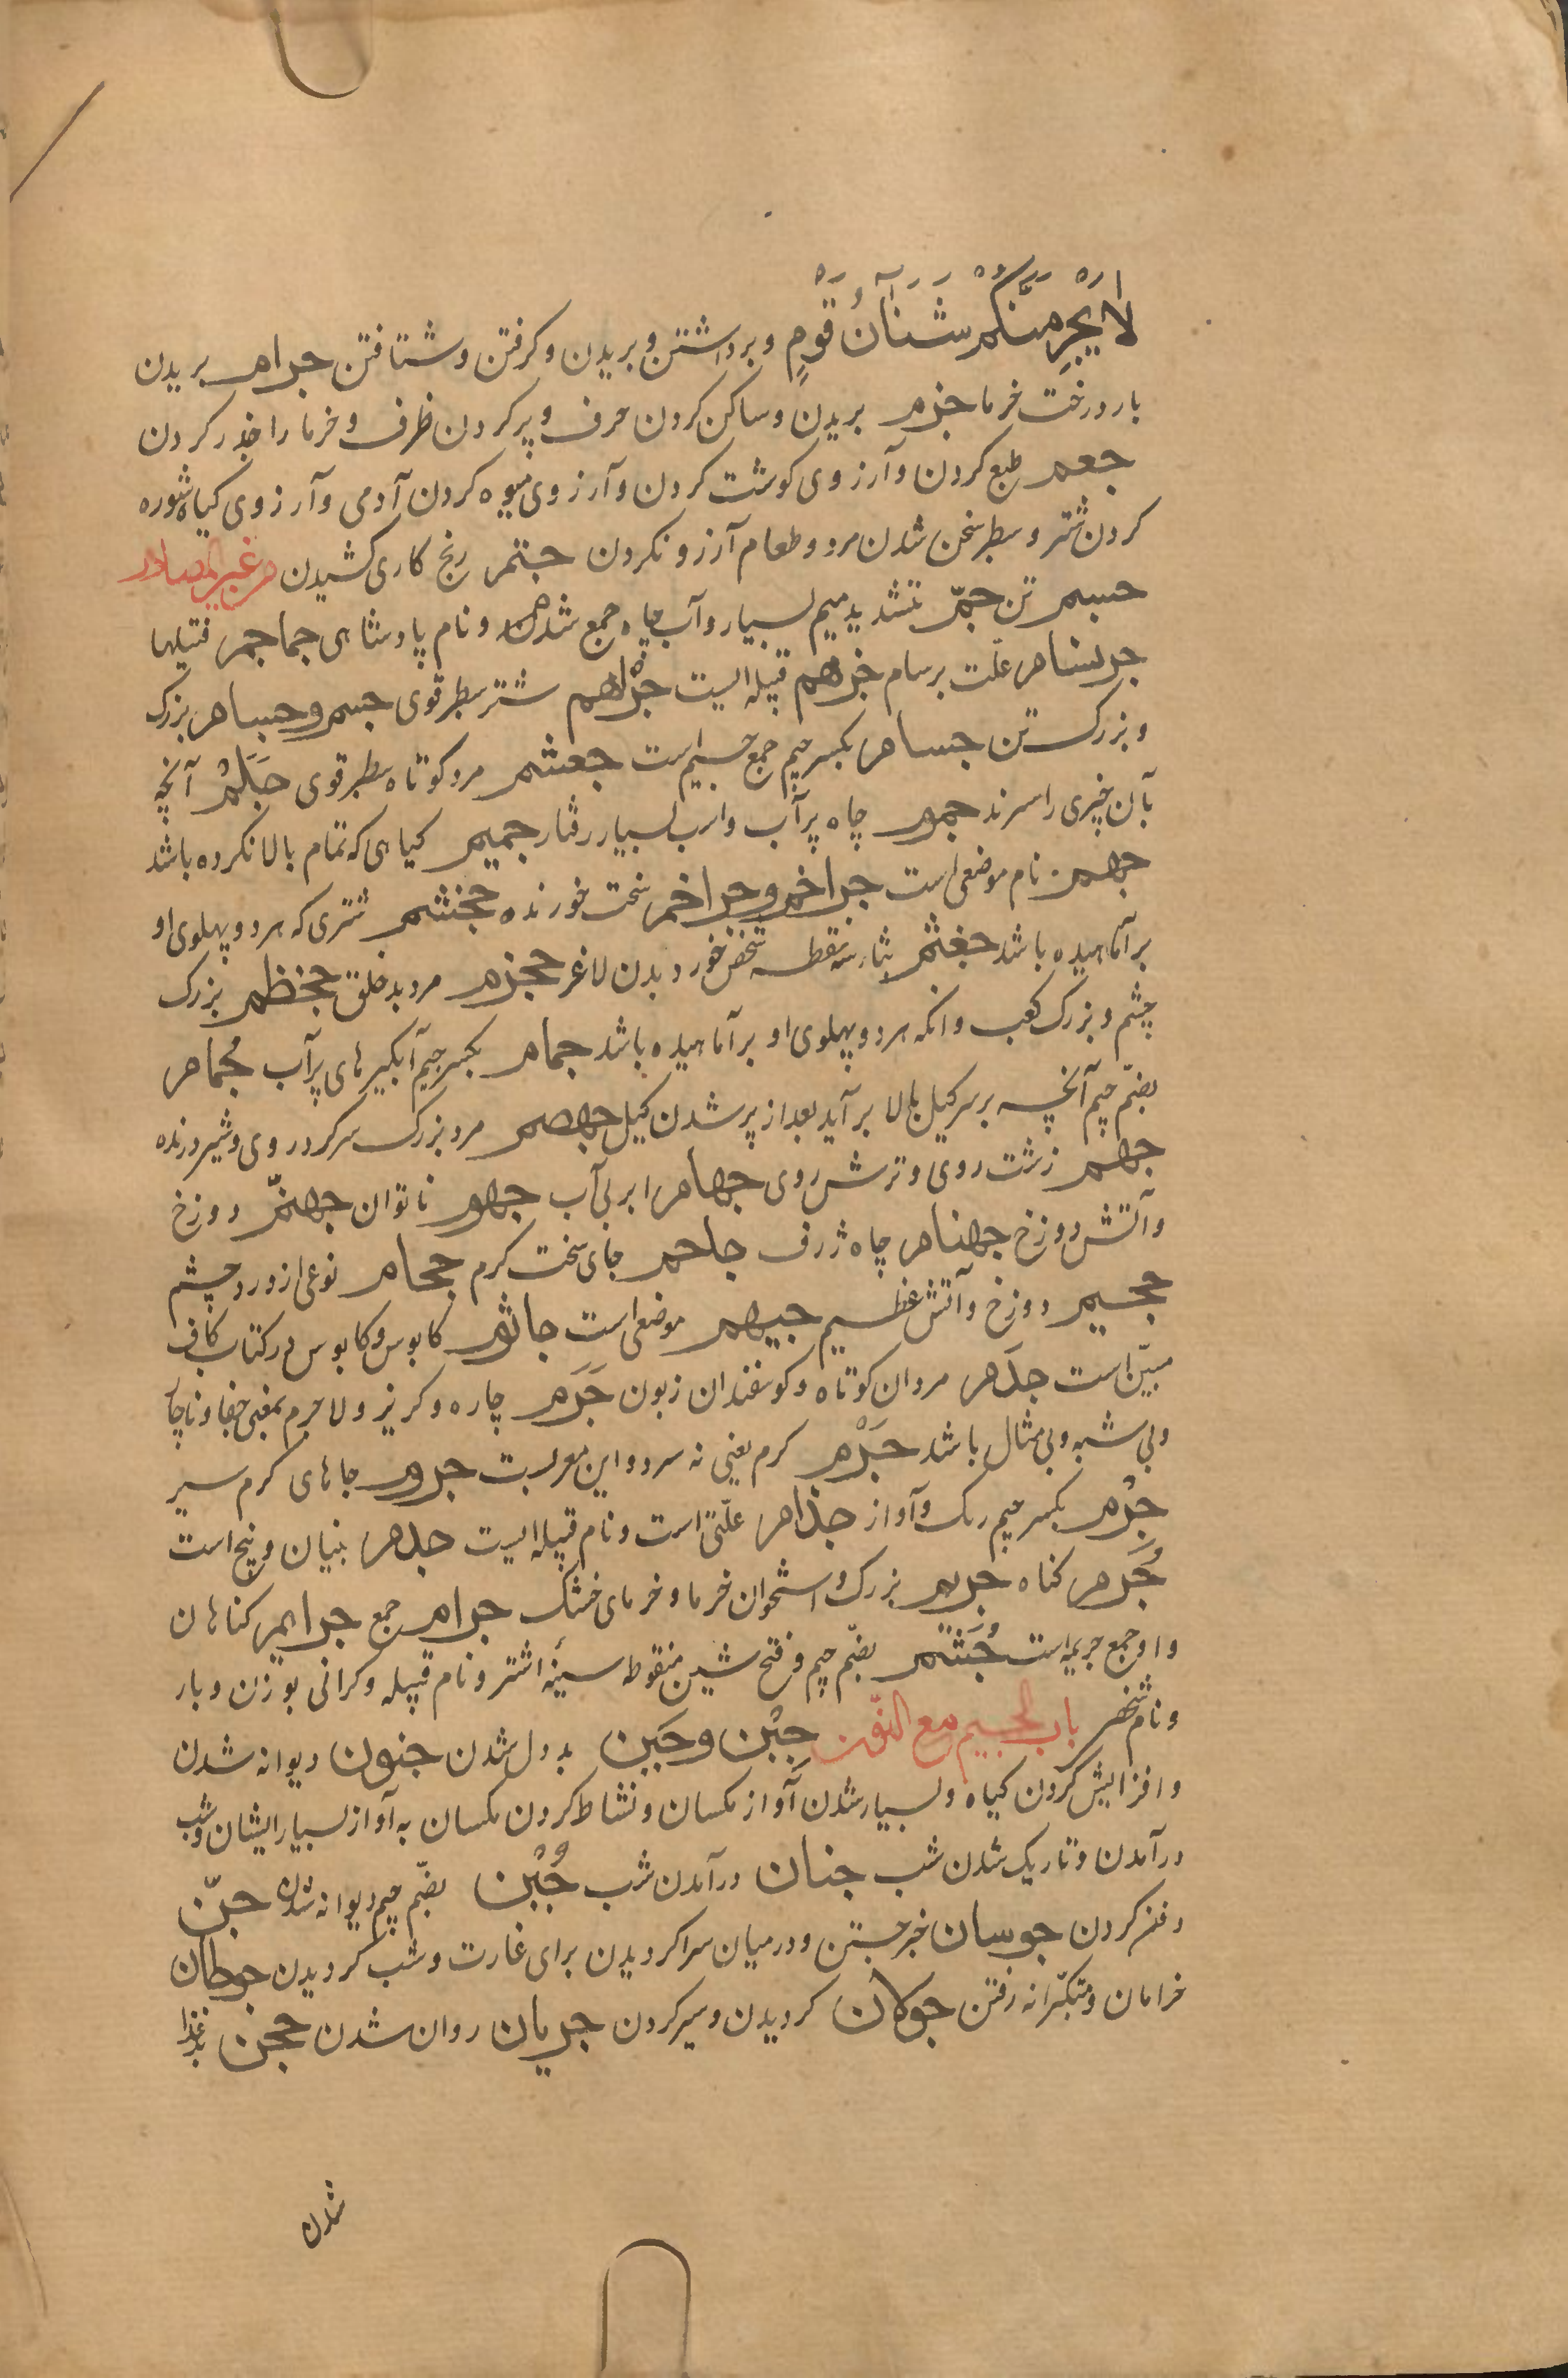 لَا يَجْرِمَنَّكُمْ شَنَآنُ قَوْمٍ و برداشتن و بریدن و کرفتن و شتافتن جرام بریدن
بار درخت خرما جزم بریدن و ساکن کردن حرف و پر کردن ظرف و خرما را خذر کردن
جعم طمع کردن و آرزوی کوشت کردن و آرزوی میوه کردن آدمی و آرزوی کیاه شوره
کردن شتر و سطبر سخن شدن مرد و طعام آرزو نکردن جشم رنج کاری کشیدن من غیر المصادر
جسم تن جمّ بتشدید میم بسیار و آب چاه جمع شده و نام پادشاهی جماجم قبیلها
جرسام علّت برسام جرهم قبیله ایست جُراهم شتر سطبر قوی جسم و جسام بزرک
و بزرک تن جسام بکسر جیم جمع جسیم است جعشم مرد کوتاه سطبر قوی جَلَمْ آنچه
بآن چیزی را برند جموم چاه پر آب و اسب بسیار رفتار جمیم کیاهی که تمام بالا نکرده باشد
جهرم نام موضعی است جراضم و جراضم سخت خورنده جخشم شتری که هر دو پهلوی او
بر آماهیده باشد جغثم بثاء سه نقطه شخص خورد بدن لاغر ججزم مرد بد خلق جحظم بزرک
چشم و بزرک کعب و انکه هر دو پهلوی او بر آماهیده باشد جمام بکسر جیم آبکیرهای پر آب جُمام
بضمّ جیم آنچه بر سر کیل بالا بر آید بعد از پر شدن کیل جهضم مرد بزرک سر کرد روی و شیر درنده
جهم زشت روی و ترش روی جهام ابر بی آب جهوم ناتوان جهنّم دوزخ
و آتش دوزخ جهنام چاه ژرف جاحم جای سخت کرم جحام نوعی از ورد چشم
جحیم دوزخ و آتش عظیم جیهم موضعی است جاثوم کابوس و کابوس در کتاب کاف
مبیّن است جدَم مردان کوتاه و کوسفندان زبون جَرَم چاره و کریز و لا جرم بمعنی حقا و ناچار
و بی شبه و بی مثال باشد جَرْم کرم یعنی نه سرد و این معربست جروم جاهای کرم سیر
جِرْم بکسر جیم رنک و آواز جذام علّتی است و نام قبیله ایست جذم بنیان و بیخ است
جُرم کناه جریم بزرک و استخوان خرما و خرمای خشک جرام جمع جرایم کناهان
و او جمع جریمه است جُشَم بضمّ جیم و فتح شین منقوطه سینهٔ اشتر و نام قبیله و کرانی بوزن و بار
و نام شخص باب الجیم مع النون جبْن و جَبن بد دل شدن جنون دیوانه شدن
و افزایش کردن کیاه و بسیار شدن آواز مکسان و نشاط کردن مکسان به آواز بسیار ایشان و شب
در آمدن و تاریک شدن شب جنان در آمدن شب جُبْن بضمّ جیم دیوانه شدن جنّ
دفن کردن جوسان خبر جستن و در میان سرا کردیدن برای غارت و شب کردیدن جوظان
خرامان و متکبّرانه رفتن جولان کردیدن و سیر کردن جریان روان شدن جحن بد غذا
شدن